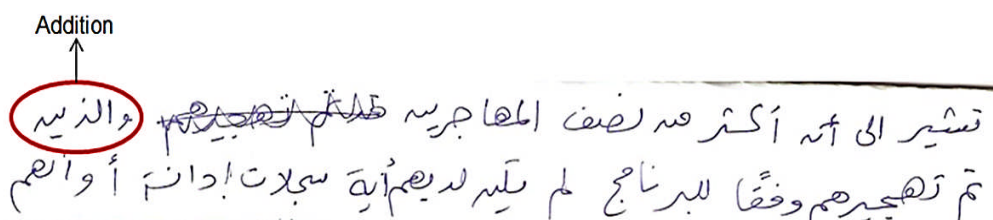 Addition
تشير الى أن أكثر من نصف المهاجرين والذين
تم تهجيرهم وفقًا للبرنامج لم يكن لديهم أية سجلات إدانة أو أنهم